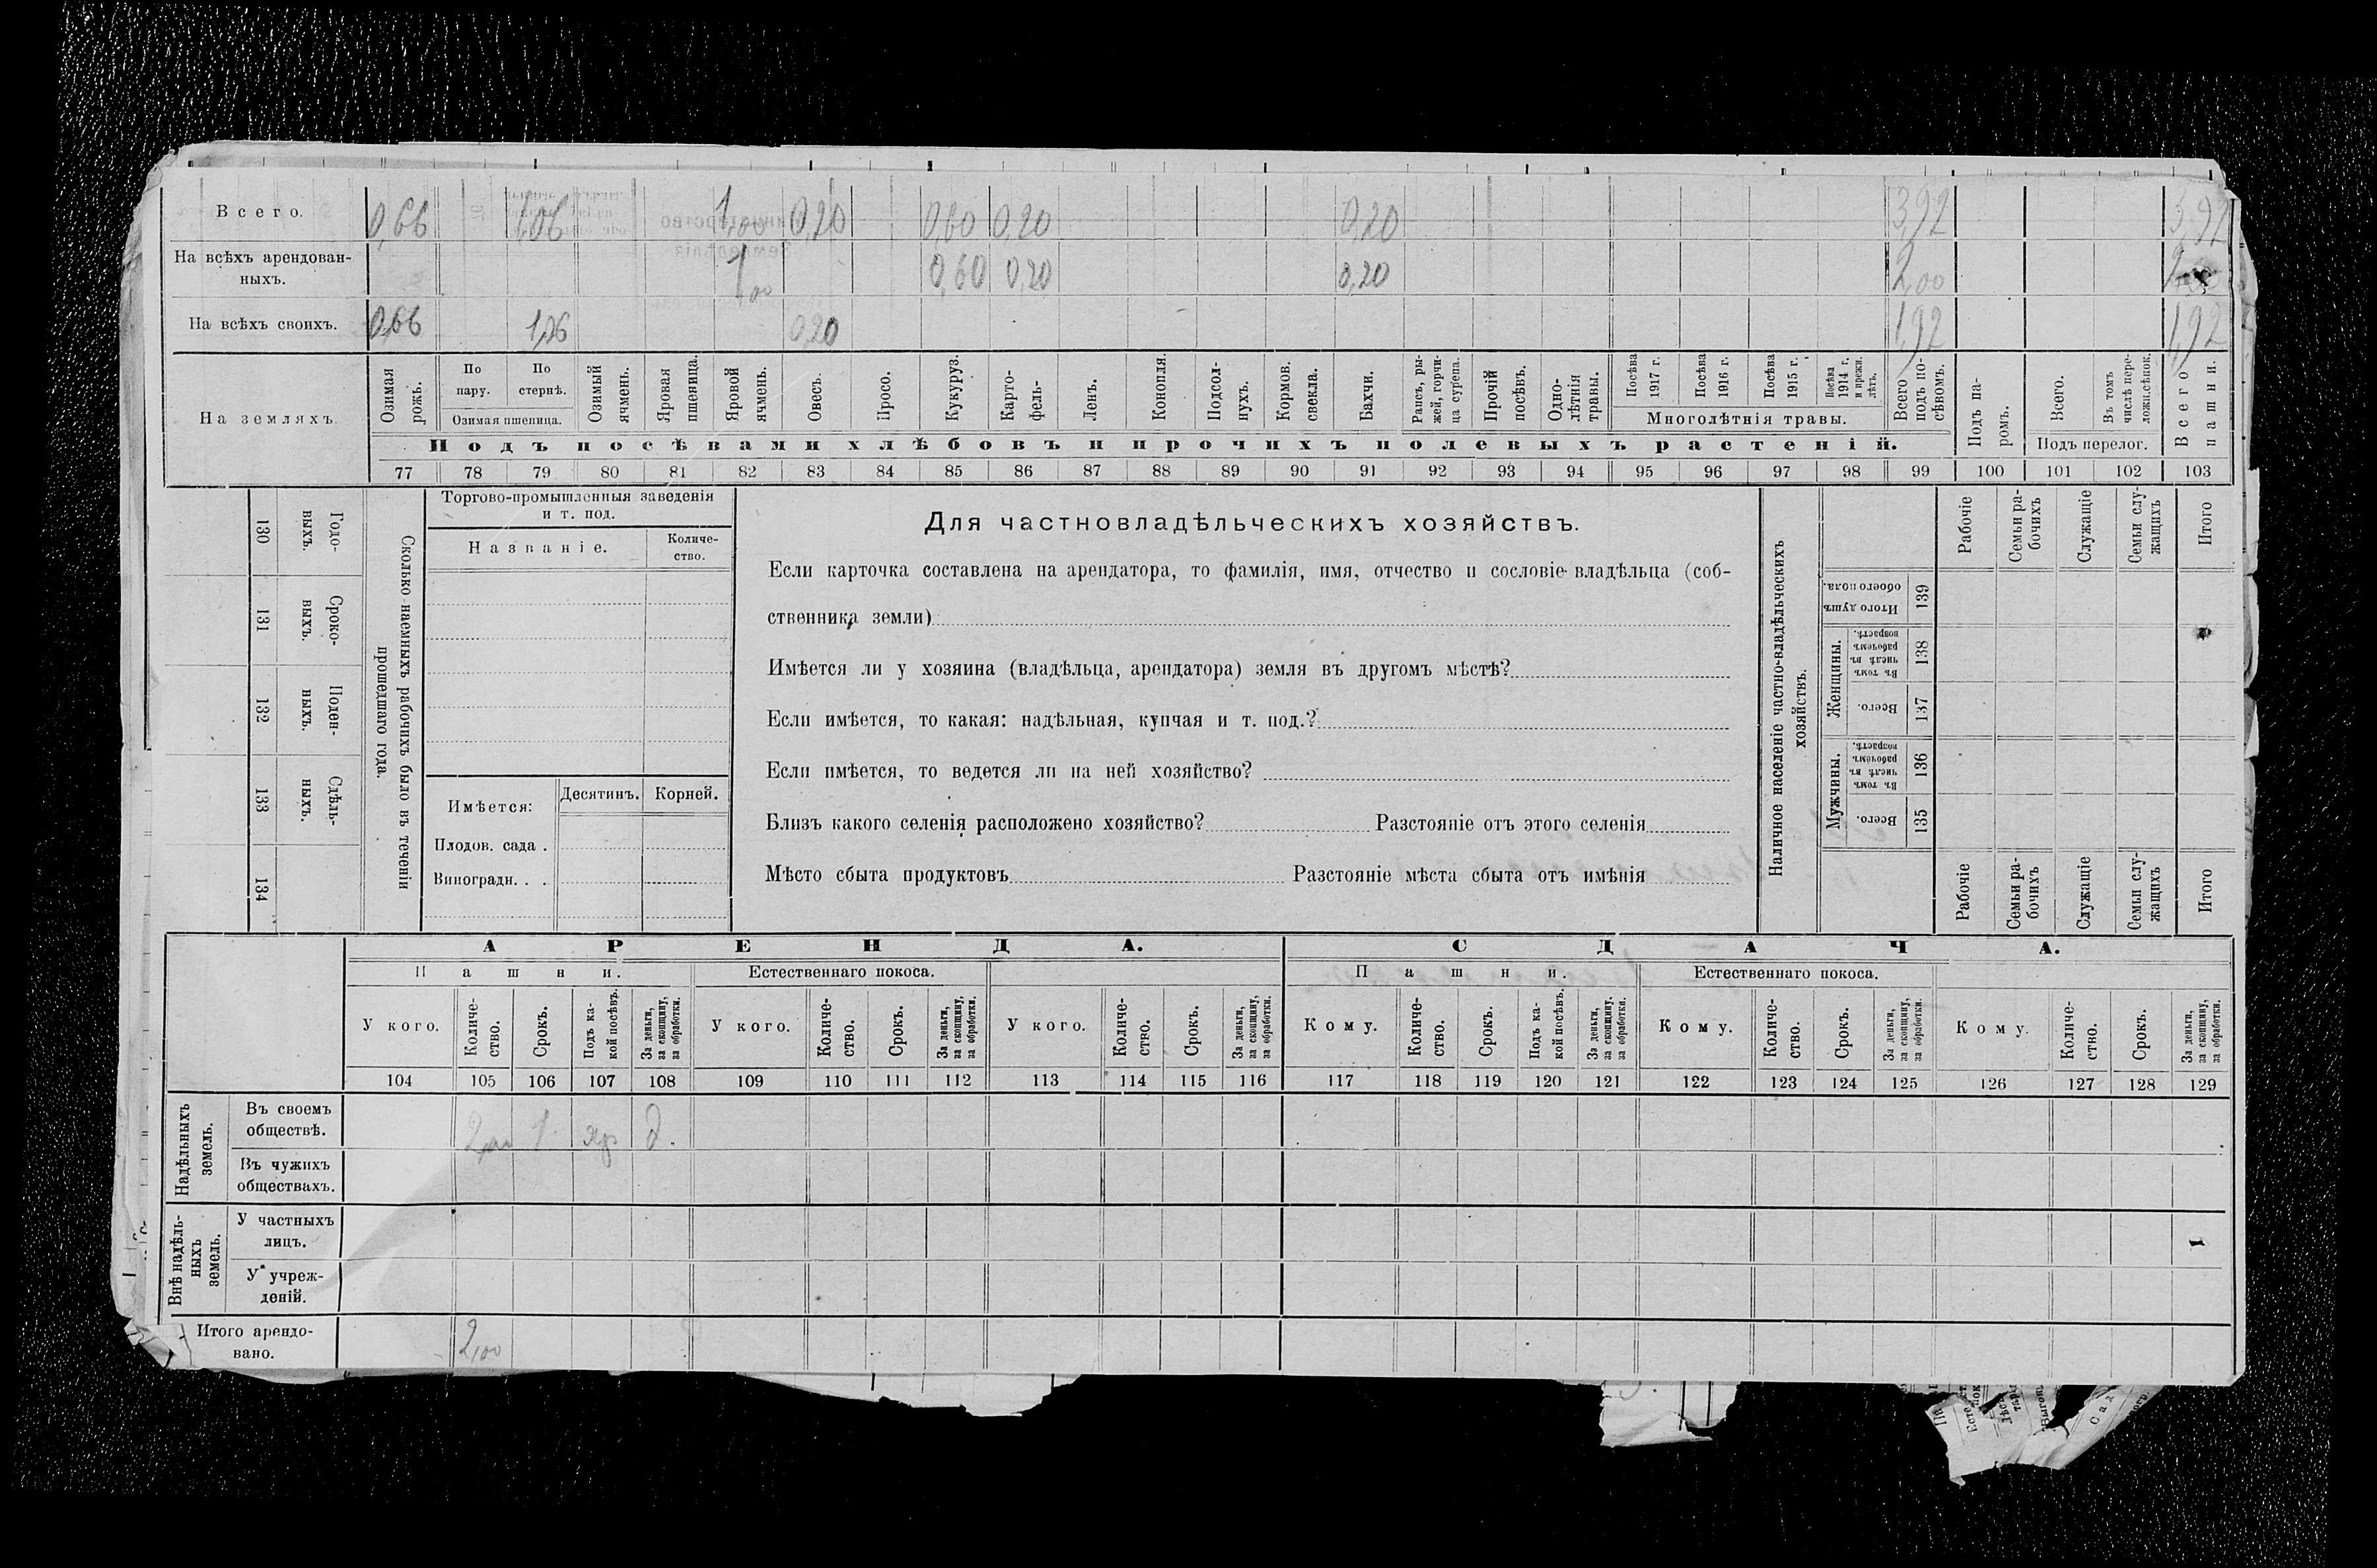 Всего. 0,66 1,06 1,00 0,20 0,60 0,20 0,20 3,92 3,92
На всѣхъ арендован-
ныхъ. 1,00 0,60 0,20 0,20 2,00
На всѣхъ своихъ. 0,66 1,06 0,20 1,92 1,92
На земляхъ
Озимая рожь.
По пару.
По стернѣ.
Озимая пшеница.
Озимый ячмень.
Яровая пшеница.
Яровой ячмень.
Овесъ.
Просо.
Кукуруз.
Карто-
фель-
Ленъ.
Конопля.
Подсол-
нухъ.
Кормов.
свекла.
Бахчи.
Рапсъ, ры-
жей, горчи-
ца сурепа.
Прочій
посѣвъ.
Одно-
лѣтнія
травы.
Посѣва
1917 г.
Посѣва
1916 г.
Посѣва
1915 г.
Посѣва
1914 г.
и прежн.
лѣтъ.
Многолѣтнія травы.
Всего
подъ по-
сѣвомъ.
Подъ па-
ромъ.
Всего.
Въ томъ
числѣ пере-
ложн.сѣнок.
Подъ перелог.
Всего
пашни.
Подъ посѣвами хлѣбовъ и прочихъ полевыхъ растеній.
77 78 79 80 81 82 83 84 85 86 87 88 89 90 91 92 93 94 95 96 97 98 99 100 101 102 103
130 Годо-
выхъ.
131 Сроко-
выхъ.
132 Поден-
ныхъ.
133 Сдѣль-
ныхъ.
134
Сколько наемныхъ рабочихъ было въ теченіи
прошедшаго года.
Торгово-промышленныя заведенія
и т. под.
Названіе.
Количе-
ство.
Имѣется:
Десятинъ. Корней.
Плодов. сада .
Виноградн. . .
Для частновладѣльческихъ хозяйствъ.
Если карточка составлена на арендатора, то фамилія, имя, отчество и сословіе владѣльца (соб-
ственника земли)
Имѣется ли у хозяина (владѣльца, арендатора) земля въ другомъ мѣстѣ?
Если имѣется, то какая: надѣльная, купчая и т. под.?
Если имѣется, то ведется ли на ней хозяйство?
Близъ какого селенія расположено хозяйство? Разстояніе отъ этого селенія
Мѣсто сбыта продуктовъ Разстояніе мѣста сбыта отъ имѣнія
Наличное населеніе частно-владѣльческихъ
хозяйствъ.
Рабочіе
Семьи ра-
бочихъ
Служащіе
Семьи слу-
жащихъ
Итого
Итого душъ
обоего пола.
139
Женщины.
Въ томъ
числѣ въ
рабочемъ
возрастѣ.
138
Всего.
137
Мужчины.
Въ томъ
числѣ въ
рабочемъ
возрастѣ.
136
Всего.
135
Рабочіе
Семьи ра-
бочихъ
Служащіе
Семьи слу-
жащихъ
Итого
АРЕНДА. СДАЧА.
Пашни. Естественнаго покоса. Пашни. Естественнаго покоса.
У кого.
Количе-
ство.
Срокъ.
Подъ ка-
кой посѣвъ.
За деньги,
за скопщину,
за обработки.
У кого.
Количе-
ство.
Срокъ.
За деньги,
за скопщину,
за обработки.
У кого.
Количе-
ство.
Срокъ.
За деньги,
за скопщину,
за обработки.
Кому.
Количе-
ство.
Срокъ.
Подъ ка-
кой посѣвъ.
За деньги,
за скопщину.
за обработки.
Кому.
Количе-
ство.
Срокъ.
За деньги,
за скопщину,
за обработки.
Кому.
Количе-
ство.
Срокъ.
За деньги,
за скопщину,
за обработки.
104 105 106 107 108 109 110 111 112 113 114 115 116 117 118 119 120 121 122 123 124 125 126 127 128 129
Надѣльныхъ
земель.
Въ своемъ
обществѣ. 2,00 1 яр д.
Въ чужихъ
обществахъ.
Внѣ надѣль-
ныхъ
земель.
У частныхъ
лицъ.
У учреж-
деній.
Итого арендо-
вано. 2,00